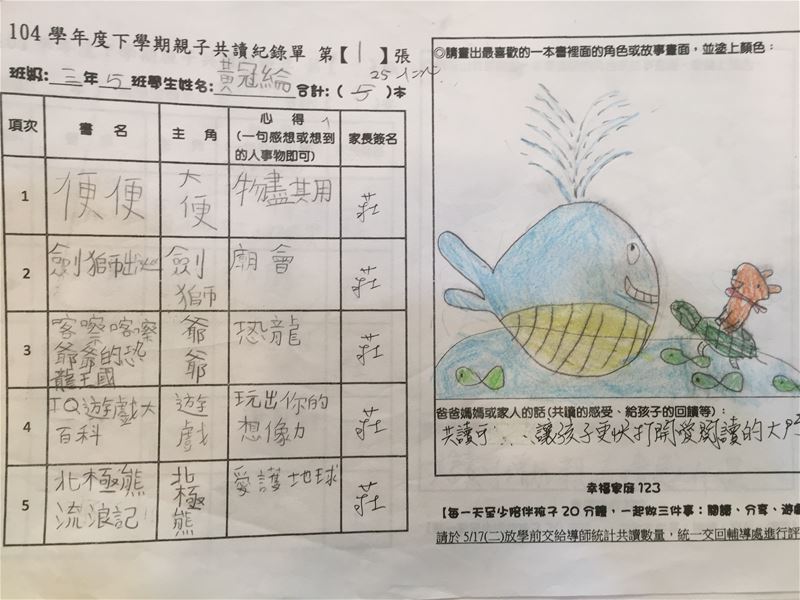 104 學年度下學期親子共讀紀錄單 第【1】張
班級：三年5班學生姓名：黃冠綸 合計：(5)本
項次 書 名 主 角 心 得 家長簽名
(一句感想或想到
的人事物即可)
1 便便 大便 物盡其用 莊
2 劍獅出巡 劍獅 廟會 莊
3 喀嚓喀嚓 爺爺 恐龍 莊
爺爺的恐
龍王國
4 IQ遊戲大 遊戲 玩出你的 莊
百科 想像力
5 北極熊 北極熊 愛護地球 莊
流浪記
◎請畫出最喜歡的一本書裡面的角色或故事畫面，並塗上顏色：
爸爸媽媽或家人的話(共讀的感受、給孩子的回饋等)：
共讀可 讓孩子更快打開愛閱讀的大門
幸福家庭 123
【每一天至少陪伴孩子 20 分鐘，一起做三件事：閱讀、分享、遊戲
請於 5/17(二)放學前交給導師統計共讀數量，統一交回輔導處進行評